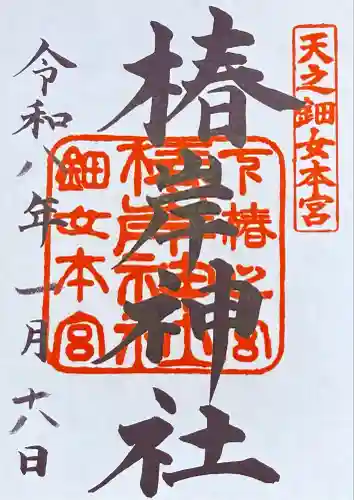 天之鈿女本宮
椿岸神社
下椿之宮
椿岸神社
鈿女本宮
令和八年一月十八日